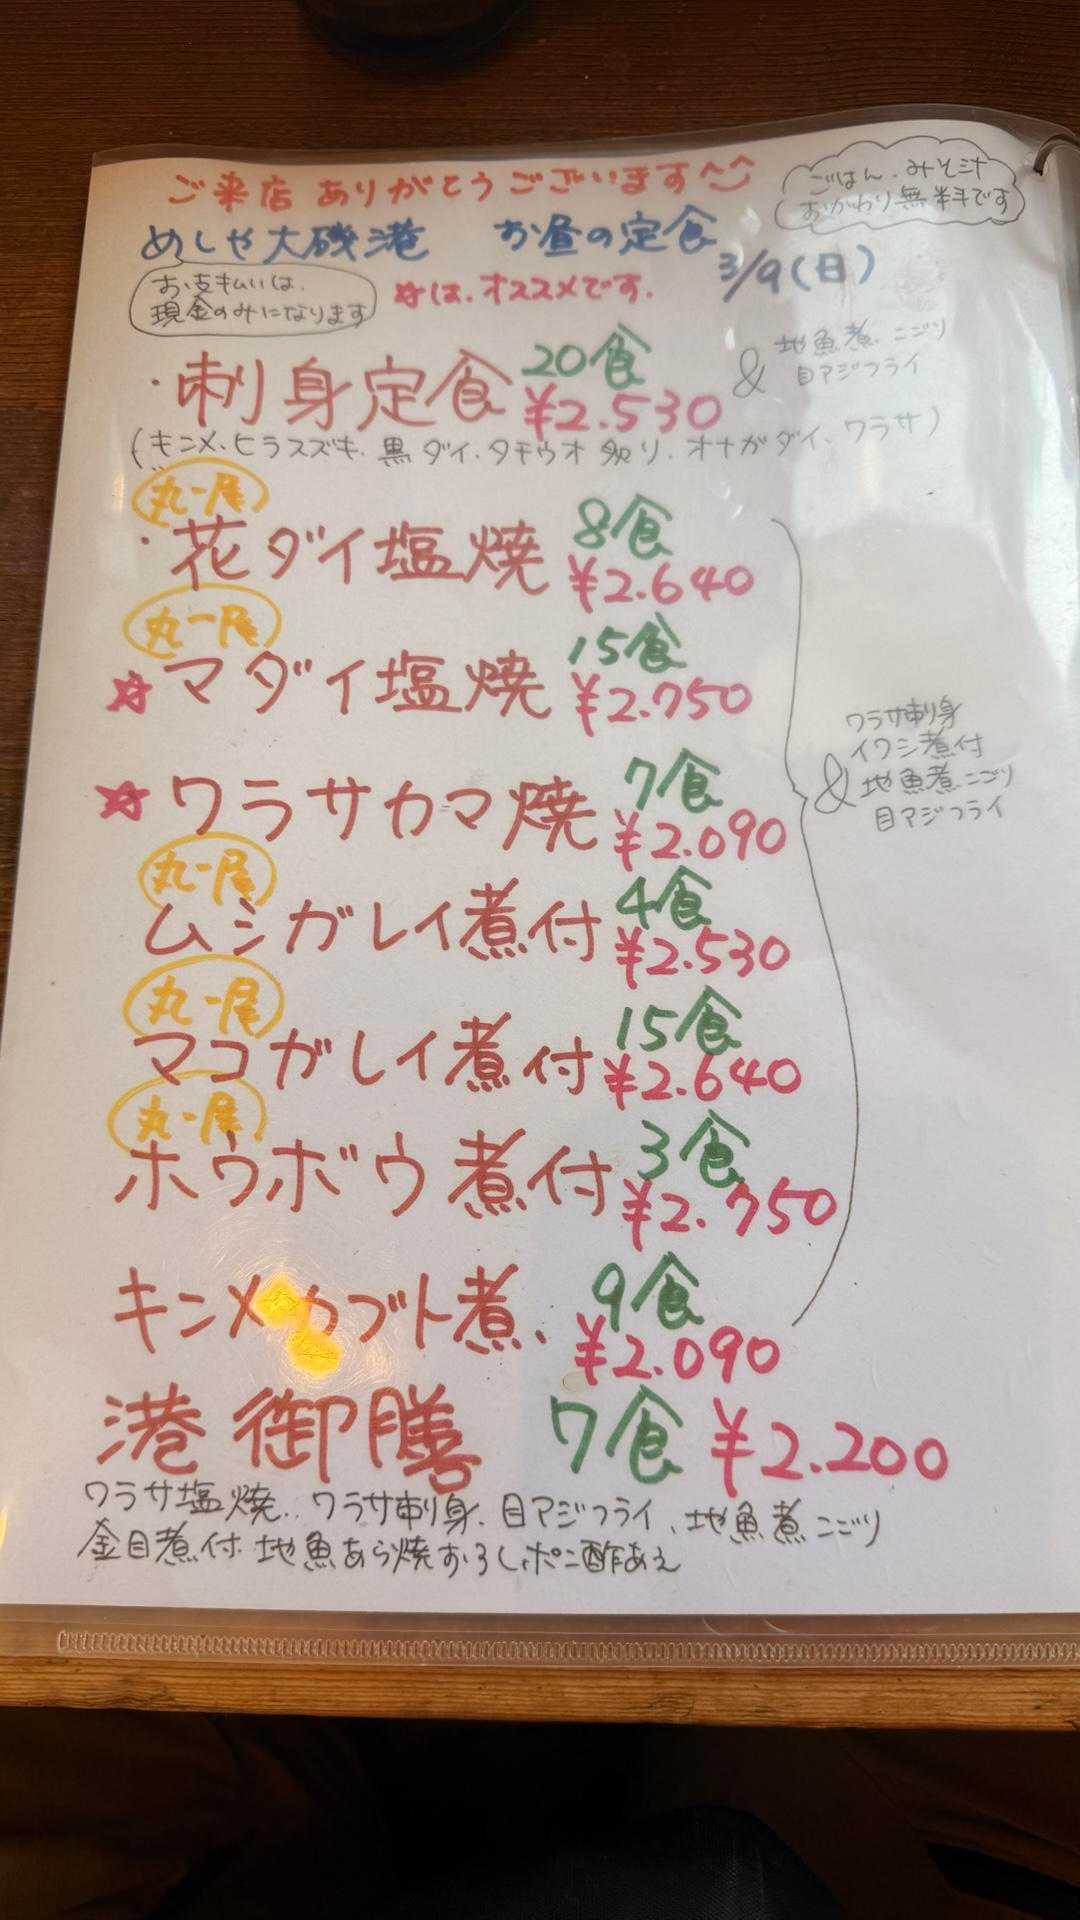 ご来店ありがとうございます^^
ごはん、みそ汁
おかわり無料です
めしや大磯港 お昼の定食
3/9(日)
お支払いは、
現金のみになります
☆は、オススメです。
・刺身定食 20食 ¥2.530
& 地魚煮こごり
目アジフライ
(キンメ、ヒラスズキ、黒ダイ、タチウオ炙り、オナガダイ、ワラサ)
丸一尾
・花ダイ塩焼 8食 ¥2.640
丸一尾
☆マダイ塩焼 15食 ¥2.750
☆ワラサカマ焼 7食 ¥2.090
丸一尾
ムシガレイ煮付 4食 ¥2.530
丸一尾
マコガレイ煮付 15食 ¥2.640
丸一尾
ホウボウ煮付 3食 ¥2.750
キンメカブト煮、 9食 ¥2.090
& ワラサ刺身
イワシ煮付
地魚煮こごり
目アジフライ
港御膳 7食 ¥2.200
ワラサ塩焼、ワラサ刺身、目アジフライ、地魚煮こごり
金目煮付、地魚あら焼おろしポン酢あえ